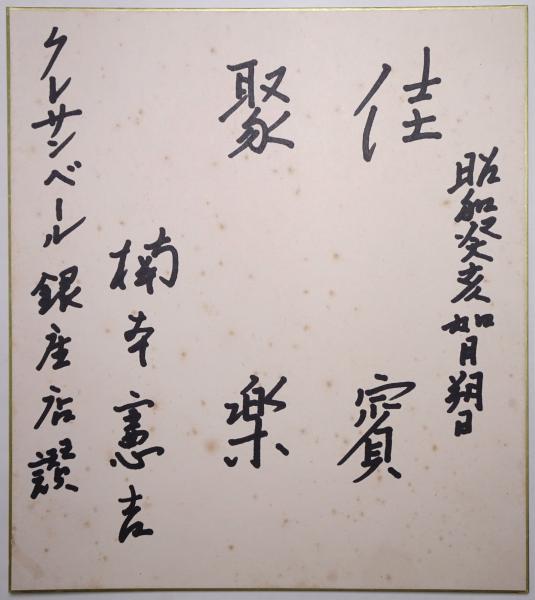 昭和癸亥如月朔日
佳賓
聚楽
楠本憲吉
クレサンベール銀座店讃